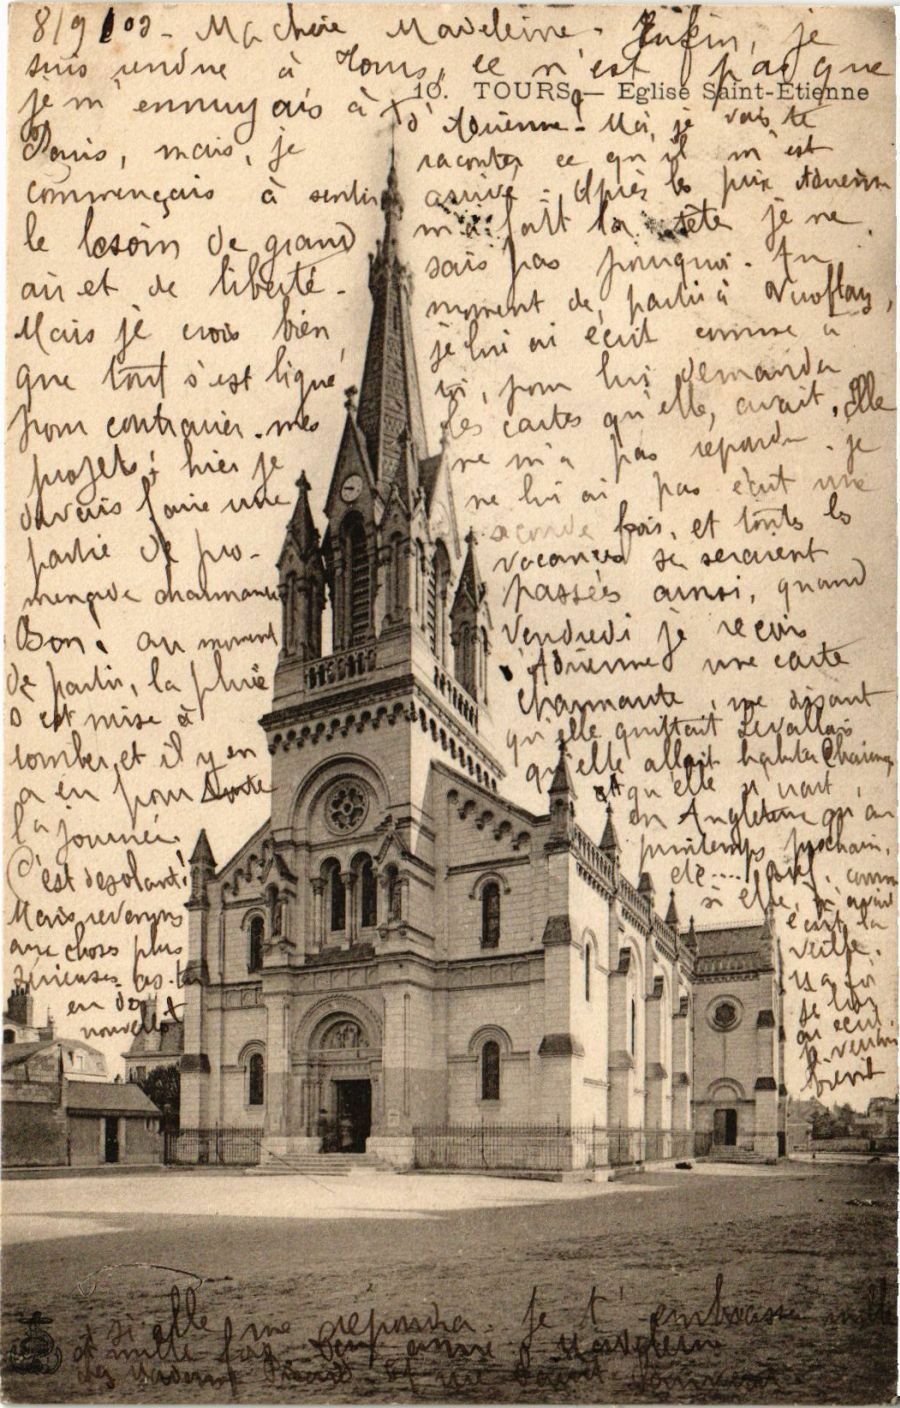 8/9/03 - Ma chère Madeleine - Enfin, je
suis rendue à Tours, ce n'est pas que
je m'ennuyais à
10. TOURS — Eglise Saint-Etienne
Paris, mais, je
commençais à sentir
le besoin de grand
air et de liberté -
Mais je crois bien
que tout s'est ligué
pour contrarier mes
projets; hier je
devais faire une
partie de pro-
menade charmante
Bon! au moment
de partir, la pluie
s'est mise à
tomber, et il y en
a eu pour toute
la journée.
C'est désolant!
Mais revenons
aux choses plus
sérieuses. as-tu
eu des
nouvelles
d'Adrienne - Moi, je vais te
raconter ce qu'il m'est
arrivé - Après les prix Adrienne
m'a fait la tête je ne
sais pas pourquoi - Au
moment de, partir à Viroflay,
je lui ai écrit comme à
toi, pour lui demander
les cartes qu'elle, avait, Elle
ne m'a pas répondu - je
ne lui ai pas écrit une
seconde fois, et toutes les
vacances se seraient
passées ainsi, quand
Vendredi je reçois
d'Adrienne une carte
charmante, me disant
qu'elle quittait Levallois
qu'elle allait habiter
et qu'elle irait,
en Angleterre au
printemps prochain,
etc.... Bref, comme
si elle, m'avait
écrit la
veille.
Ma foi
je lui
ai écrit.
bient
si elle me répondra. Je t'embrasse mille
et mille fois Ton amie Madeleine
chez Madame rue Saint